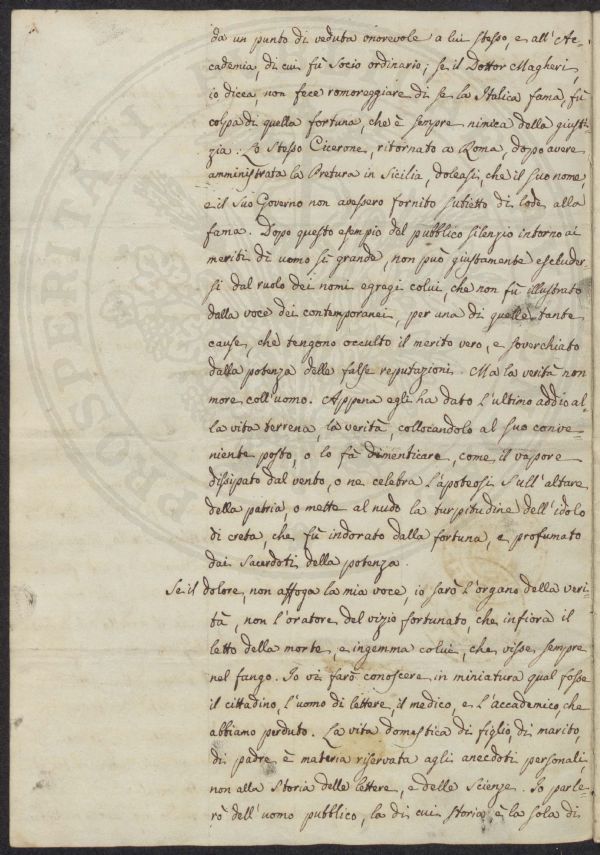 da un punto di veduta onorevole a lui stesso, e all'Ac-
cademia, di cui fù Socio ordinario; se il Dottor Magheri,
io dicea, non fece romoreggiare di se la Italica fama, fù
colpa di quella fortuna, che è sempre nimica della giusti-
zia. Lo stesso Cicerone, ritornato a Roma, dopo avere
amministrata la Pretura in Sicilia, doleasi, che il suo nome,
e il suo Governo non avessero fornito subietto di lode alla
fama. Dopo questo esempio del pubblico silenzio intorno ai
meriti di uomo sì grande, non può giustamente escluder-
si dal ruolo dei nomi egregi colui, che non fù illustrato
dalla voce dei contemporanei, per una di quelle tante
cause, che tengono occulto il merito vero, e soverchiato
dalla potenza delle false reputazioni. Ma la verità non
more coll'uomo. Appena egli ha dato l'ultimo addio al-
la vita terrena, la verità, collocandolo al suo conve-
niente posto, o lo fà dimenticare, come il vapore
dissipato dal vento, o ne celebra l'apoteosi sull'altare
della patria, o mette al nudo la turpitudine dell'idolo
di creta, che fù indorato dalla fortuna, e profumato
dai sacerdoti della potenza.
Se il dolore, non affoga la mia voce, io sarò l'organo della veri-
tà, non l'oratore del vizio fortunato, che infiora il
letto della morte, e ingemma colui, che visse sempre
nel fango. Io vi farò conoscere in miniatura qual fosse
il cittadino, l'uomo di lettere, il medico, e l'accademico, che
abbiamo perduto. La vita domestica di figlio, di marito,
di padre è materia riservata agli anecdoti personali,
non alla Storia delle lettere, e delle Scienze. Io parle-
rò dell'uomo pubblico, la di cui storia è la sola di
PROSPERITATI